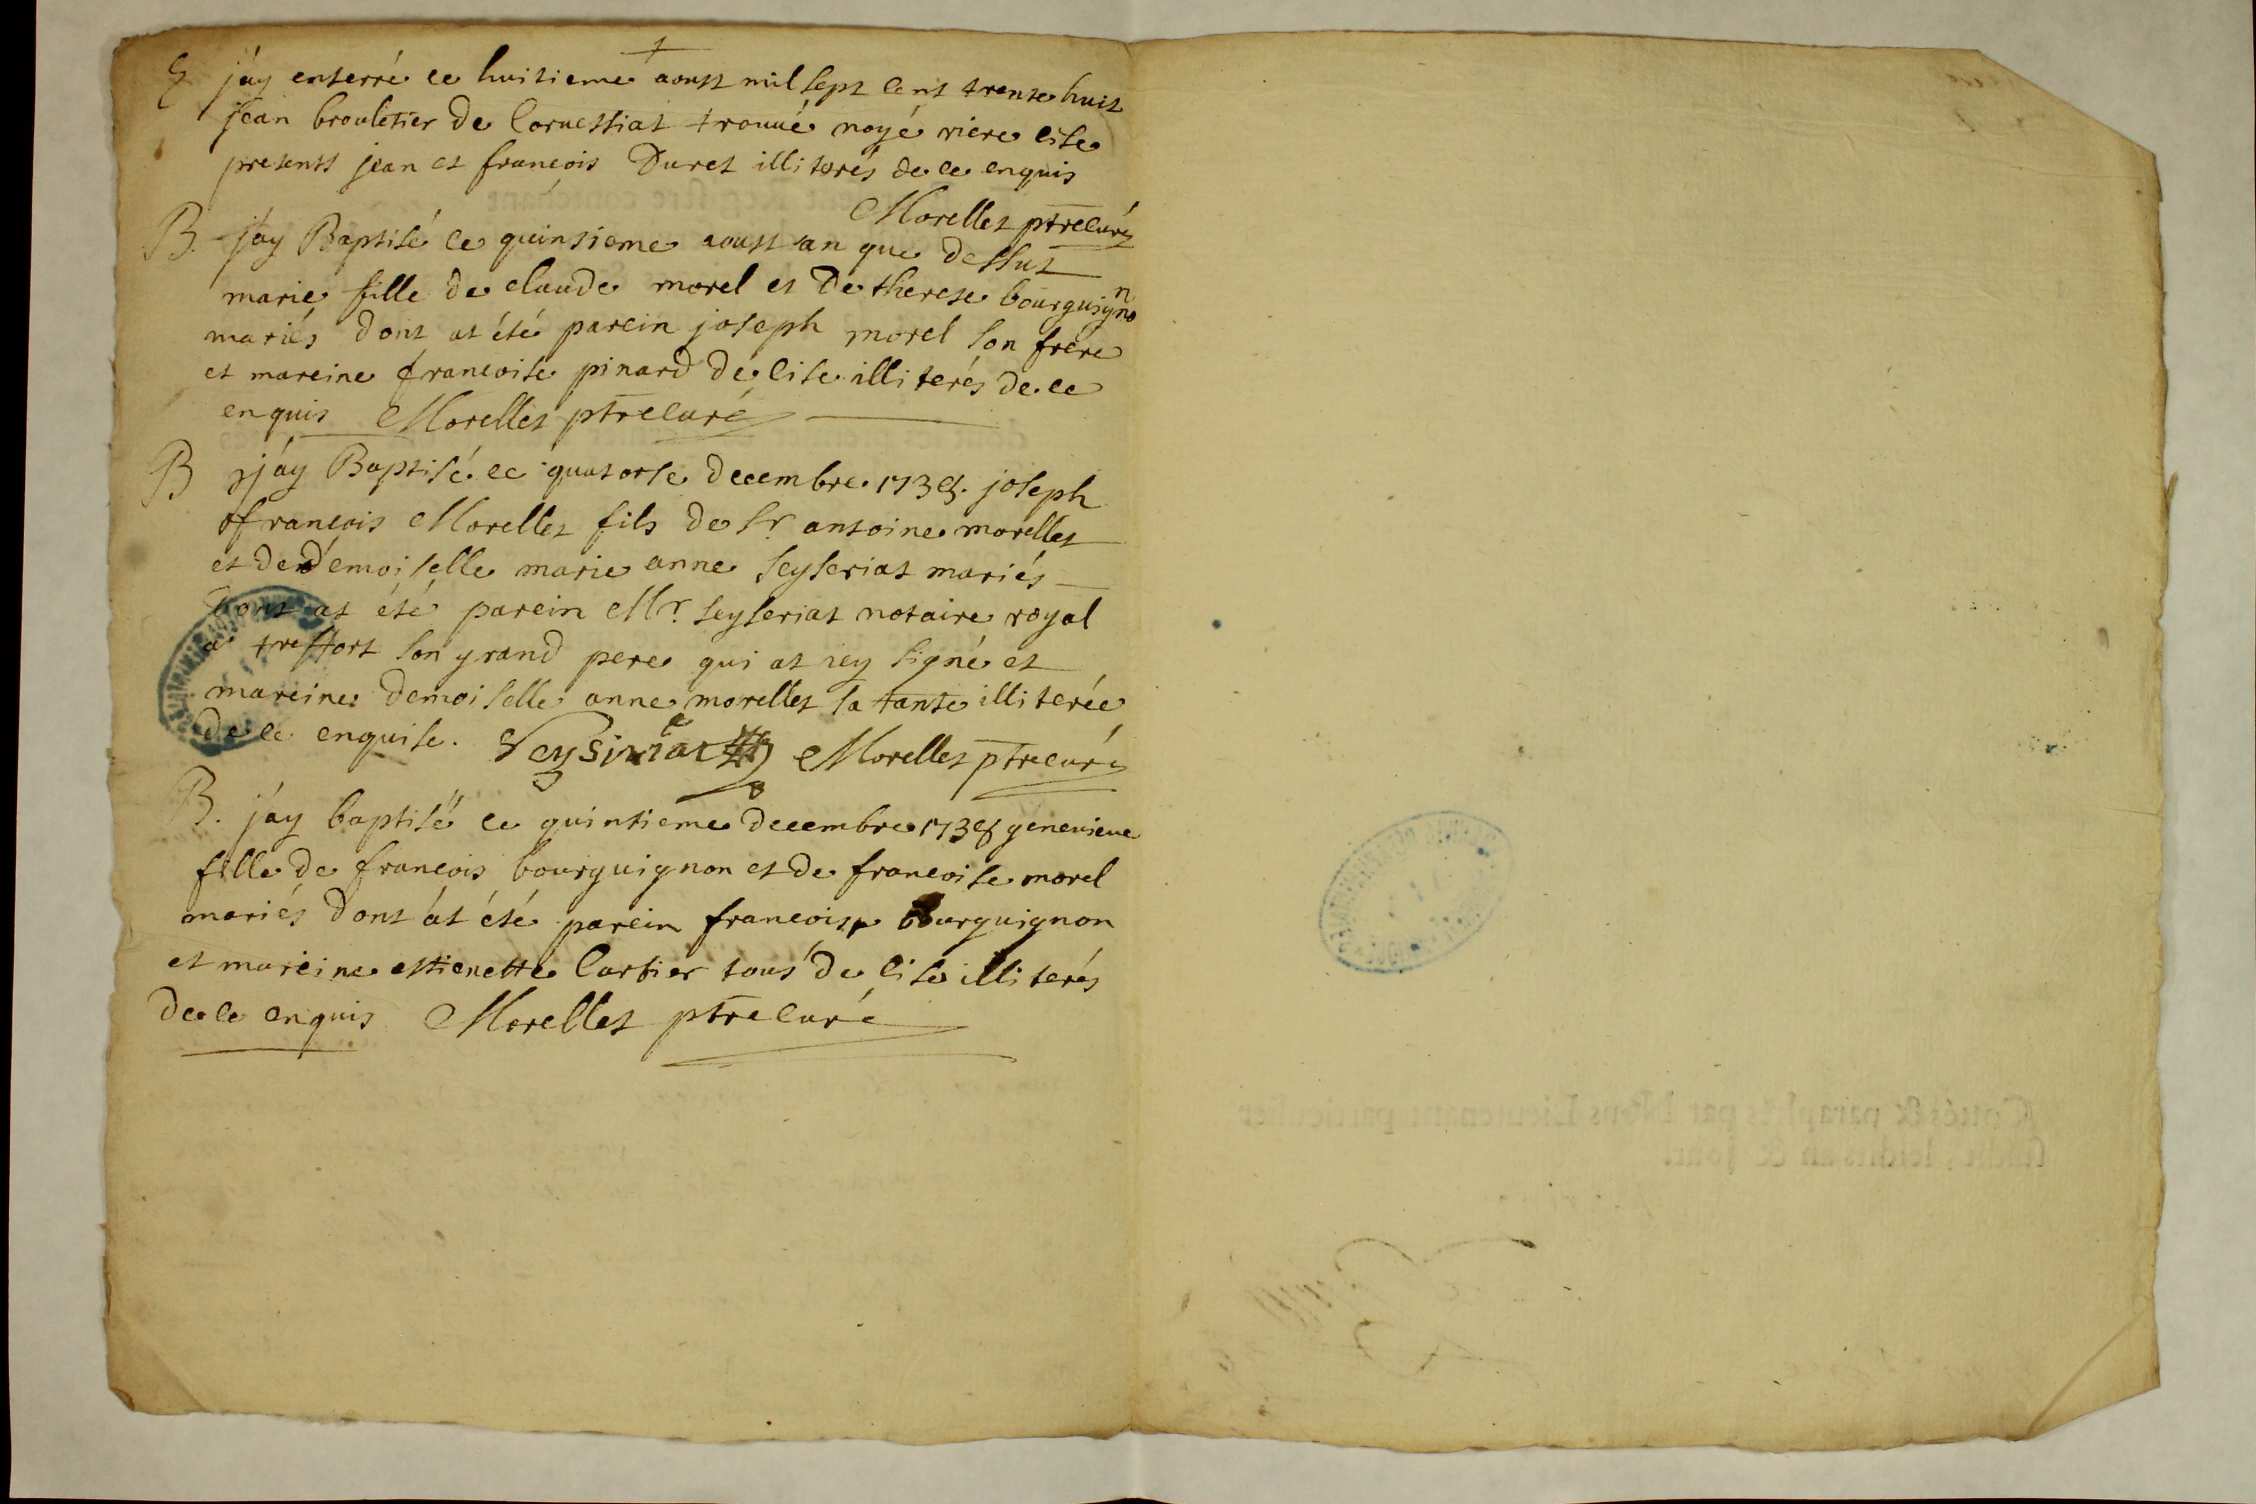 E j'ay enterré ce huitieme aoust mil sept cent trente huit
jean broulctier de Corvessiat trouvé noyé riere cise
presents jean et francois Duret illiterés de ce enquis
Morellet ptre curé
B. j'ay Baptisé ce quinsieme aoust an que dessus
marie fille de claude morel et De therese bourguignon
mariés dont at été parein joseph morel son frere
et mareine francoise pinard de cise illiterés de ce
enquis Morellet ptre curé
B j'ay Baptisé ce quatorse decembre 1738. joseph
francois Morellet fils de Sr antoine morellet
et de demoiselle marie anne seyseriat mariés
Dont at été parein Mr. seyseriat notaire royal
a treffort son grand pere qui at icy signé et
mareine demoiselle anne morellet sa tante illiterée
de ce enquise. Seyseriat Morellet ptre curé
B. j'ay baptisé ce quinsieme decembre 1738 genevieve
fille de francois bourguignon et de francoise morel
mariés dont at été parein francois bourguignon
et mareine estienette Cartier tous de cise illiterés
de ce enquis Morellet ptre curé